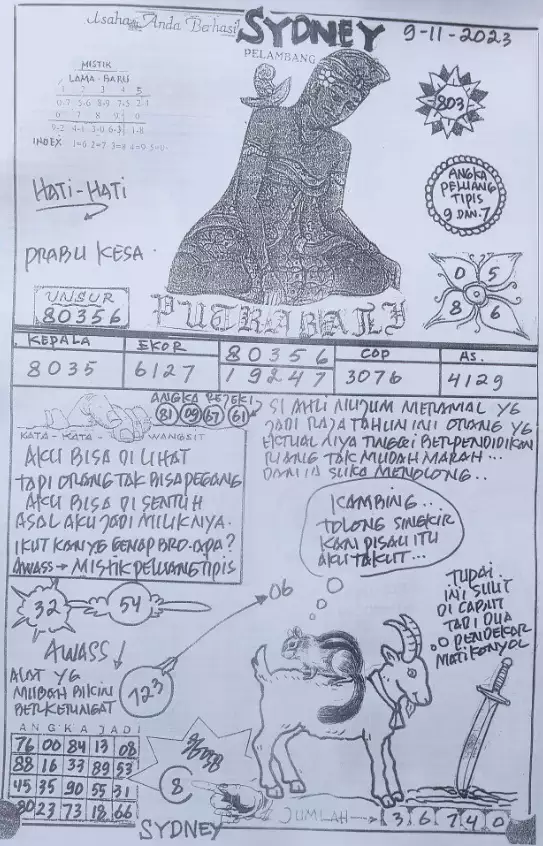 Usaha Anda Berhasil
SYDNEY
9-11-2023
PELAMBANG
MISTIK
LAMA - BARU
1 2 3 4 5
0-7 5-6 8-9 7-3 2-1
0 7 8 9 0
9-2 4-1 3-0 6-3 1-8
INDEX
803
ANGKA
PELUANG
TIPIS
9 DAN 7
HATI-HATI
PRABU KESA.
0 5
8 6
UNSUR
80356
PUTRA BALI
KEPALA
8035
EKOR
6127
80356
19247
COP
3076
AS.
4129
ANGKA REJEKI
81 09 67 61
KATA - KATA - WANGSIT
AKU BISA DI LIHAT
TAPI ORANG TAK BISA PEGANG
AKU BISA DI SENTUH
ASAL AKU JADI MILIKNYA.
IKUT KAN YG GENAP BRO. APA?
AWASS → MISTIK PELUANG TIPIS
SI AHLI NUJUM MERAMAL YG
JADI RAJA TAHUN INI ORANG YG
TINGGI BERPENDIDIKAN
RIANG TAK MUDAH MARAH...
DAN IA SUKA MENOLONG..
KAMBING...
TOLONG SINGKIR
KAN PISAU ITU
AKU TAKUT...
TUPAI.
INI SULIT
DI CABUT
TADI DUA
PENDEKAR
MATI KONYOL
32
54
06
AWASS!
ALAT YG
MUDAH BIKIN
BERKERINGAT
123
ANGKA JADI
76 00 84 13 08
88 16 33 89 53
45 35 90 55 31
80 23 73 18 66
8
SYDNEY
JUMLAH → 3 6 7 4 0